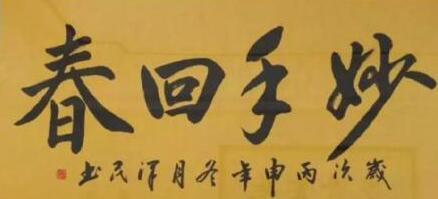 妙手回春
岁次丙申年冬月泽民书